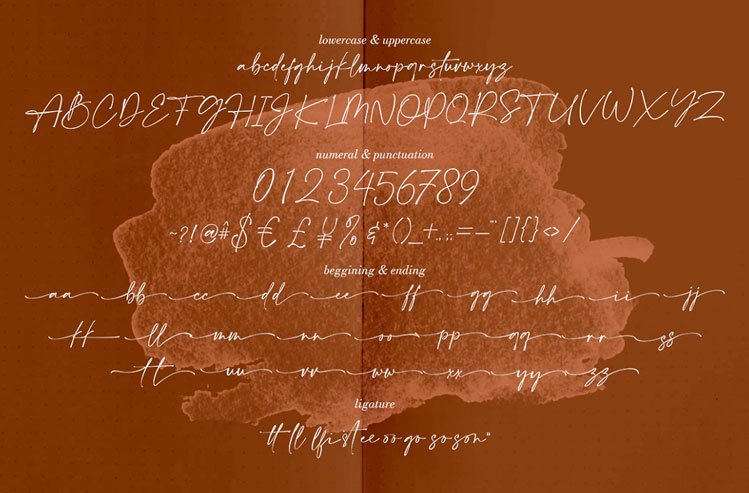 lowercase & uppercase
abcdefghijklmnopqrstuvwxyz
ABCDEFGHIJKLMNOPQRSTUVWXYZ
numeral & punctuation
0123456789
~?!@#$€£¥%&*()_+.,:;=—"'[]{}<>/
beggining & ending
aa bb cc dd ee ff gg hh ii jj
kk ll mm nn oo pp qq rr ss
tt uu vv ww xx yy zz
ligature
tt ll lfi st ee oo go so son"